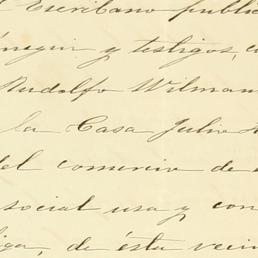 Escribano public
y testigos, c
Rudolfo Wilman
la Casa Julio
del comercio de
social usa y con
liga, de ésta veci